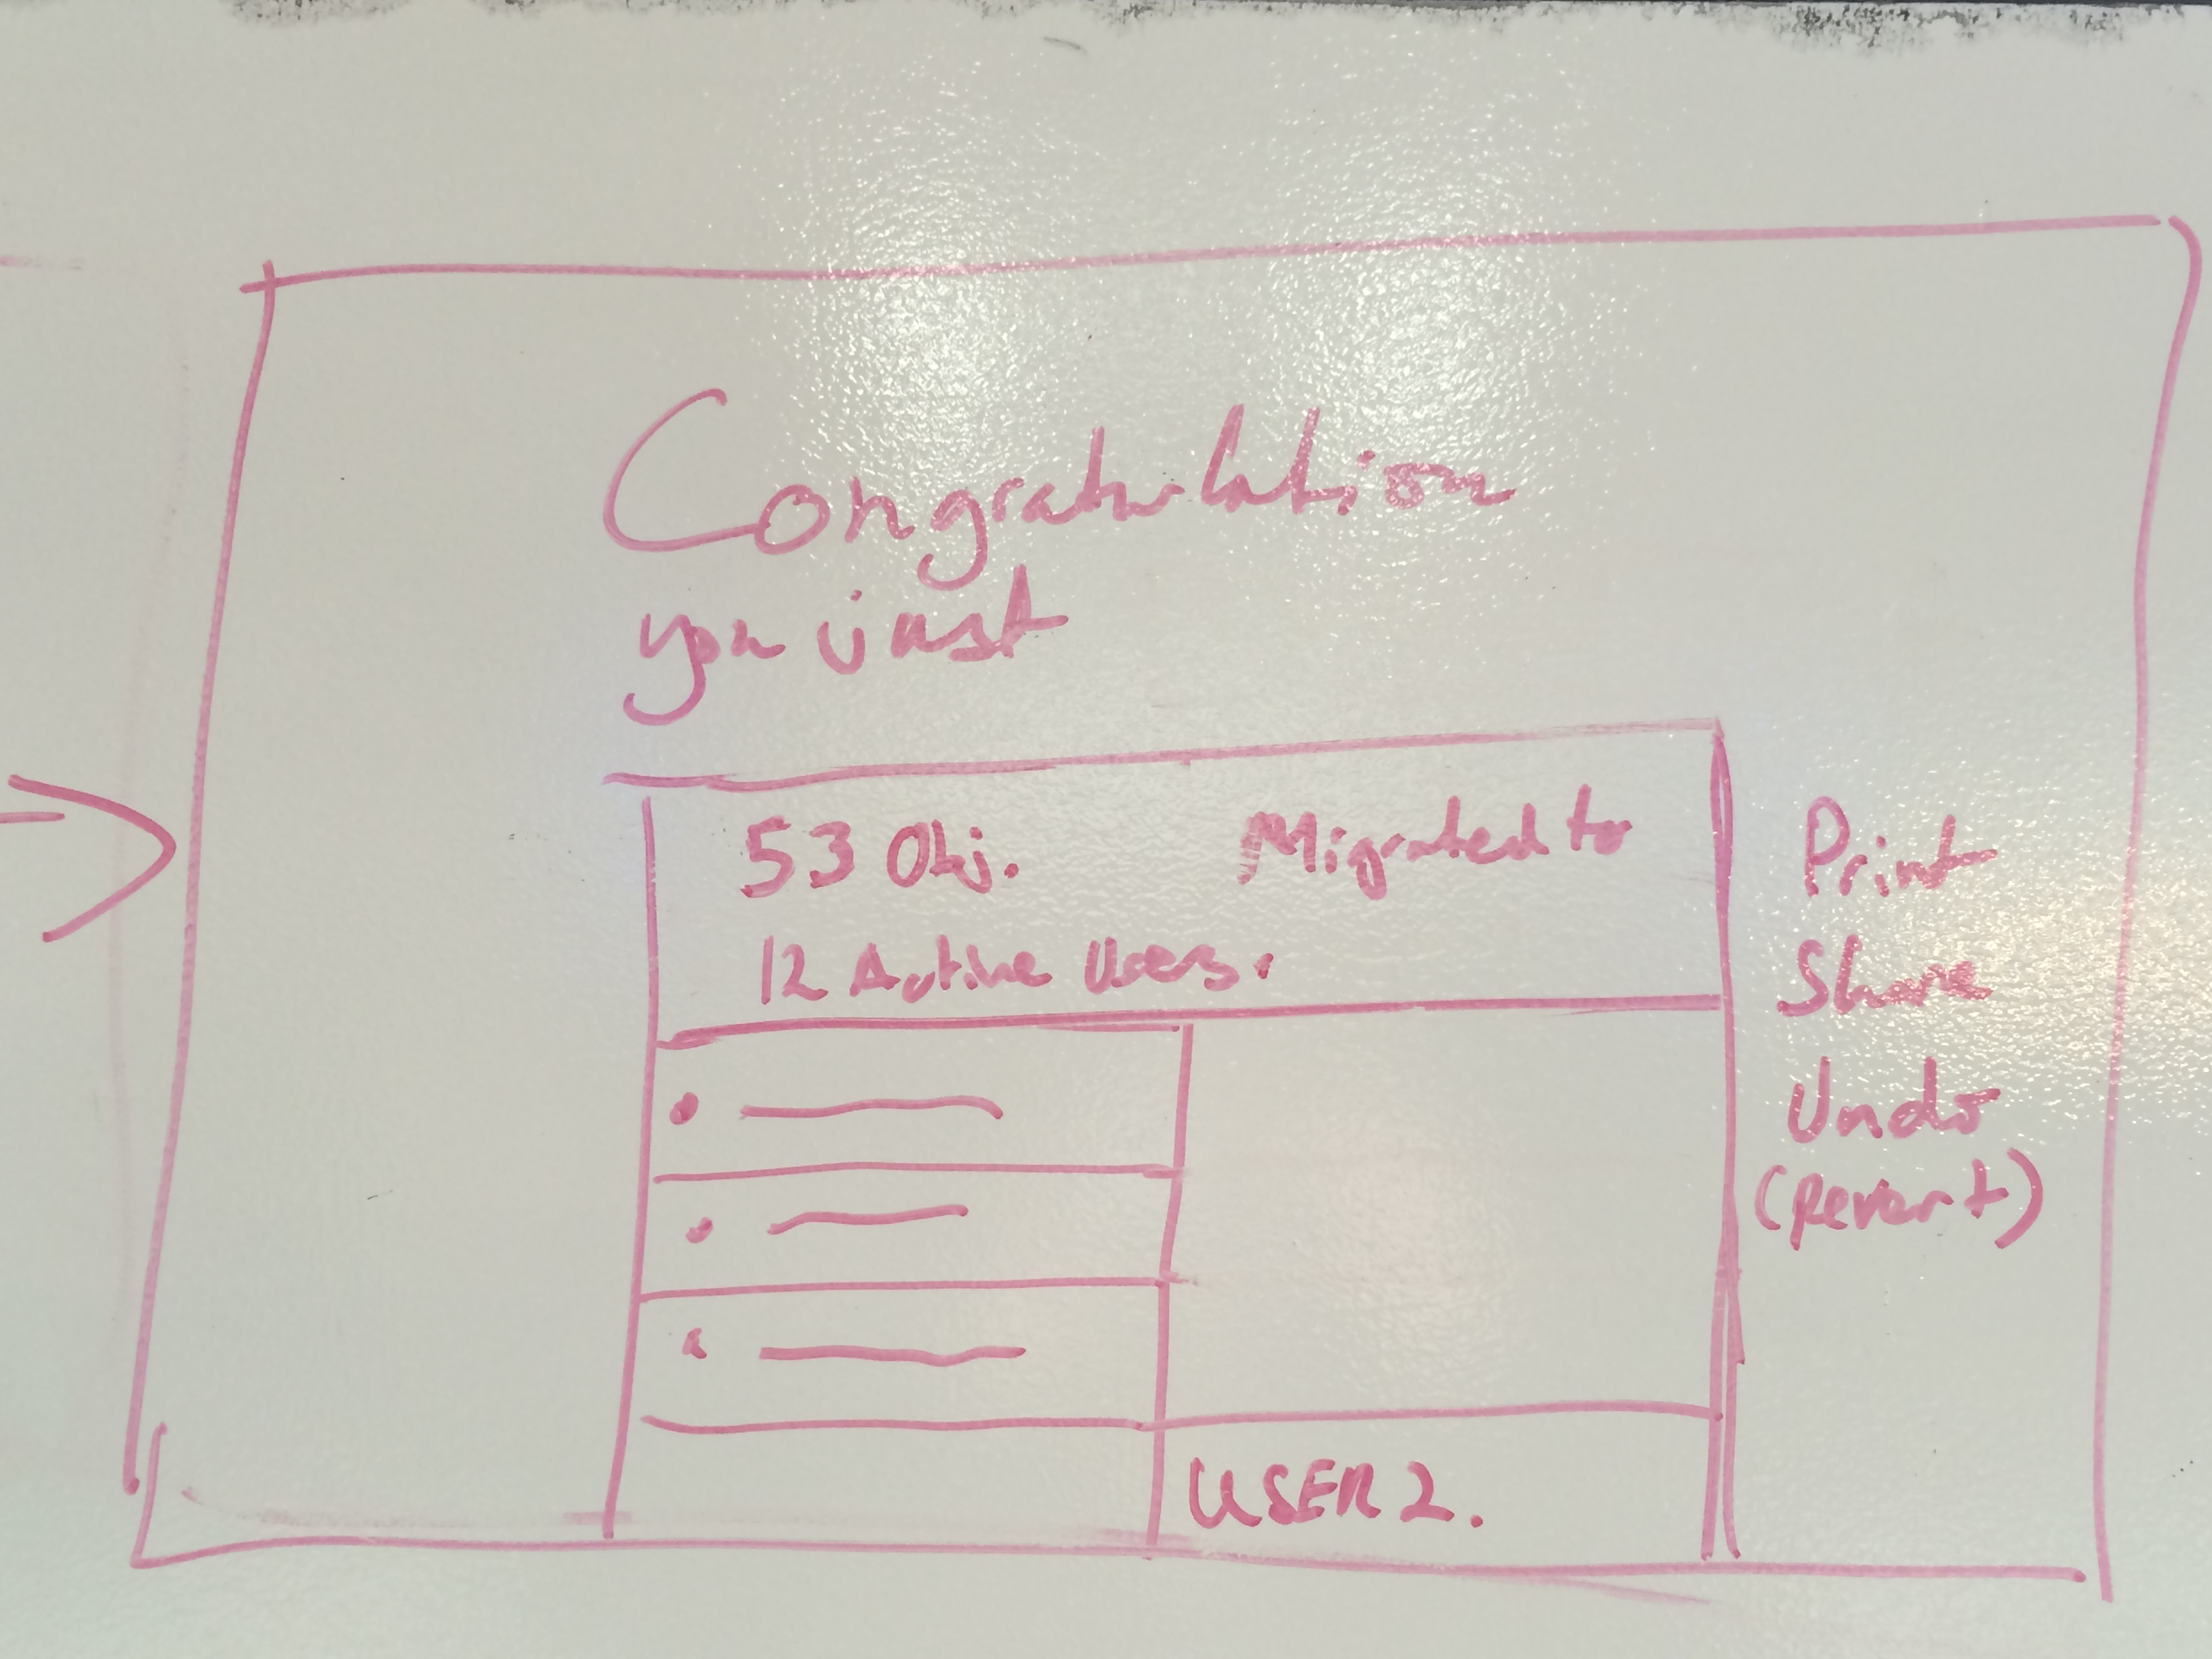 Congratulation
you just
53 Obj. Migrated to
12 Active Users.
Print
Share
Undo
(Revert)
USER 2.